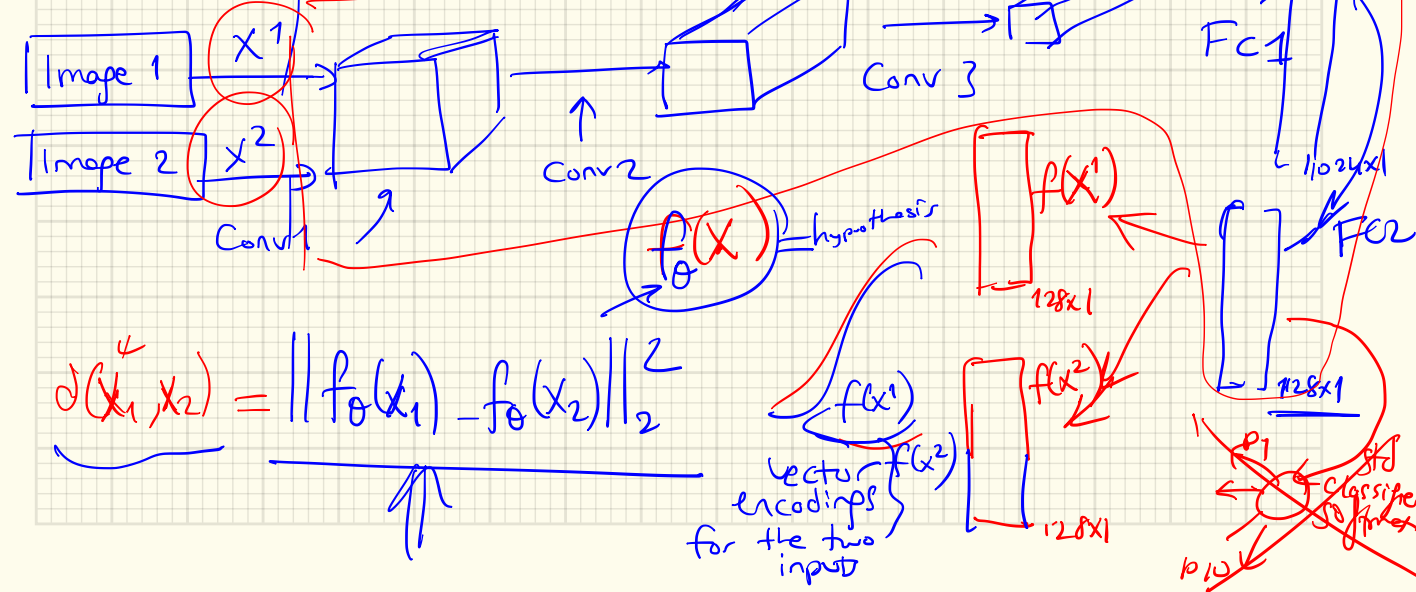 Image 1
x¹
Image 2
x²
Conv 1
Conv 2
Conv 3
FC1
1024x1
FC2
128x1
f_θ(x)
hypothesis
f(x¹)
128x1
f(x²)
128x1
d(x₁,x₂) = ||f_θ(x₁) - f_θ(x₂)||₂²
f(x¹)
f(x²)
vector
encodings
for the two
input
P1
P10
std
classifier
softmax